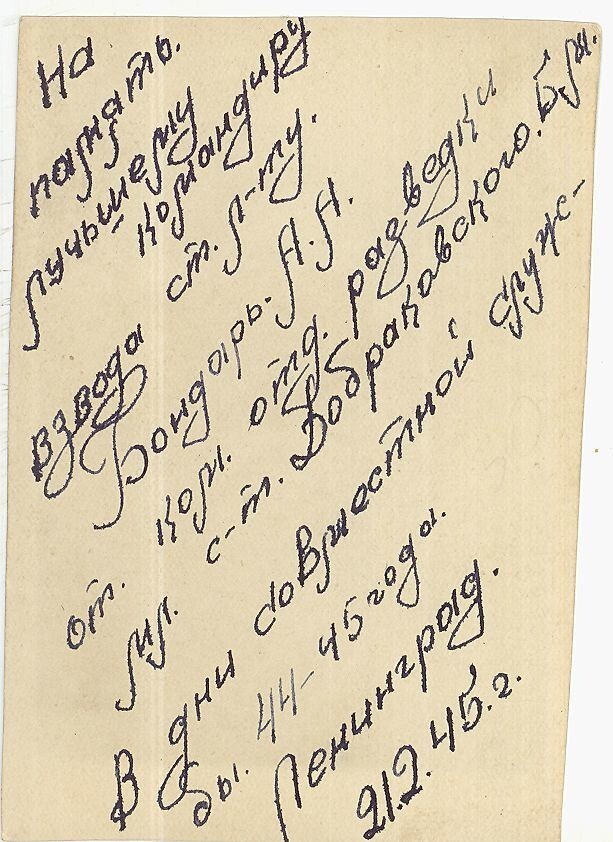 На
память.
лучьшему
командиру
взвода ст. л-ту.
Бондарь. А.А.
от. ком. отд. разведки
мл. с-т. Добраковского. Б.М.
В дни совместной служ-
бы. 44-45 года.
Ленинград.
21.2.45.г.